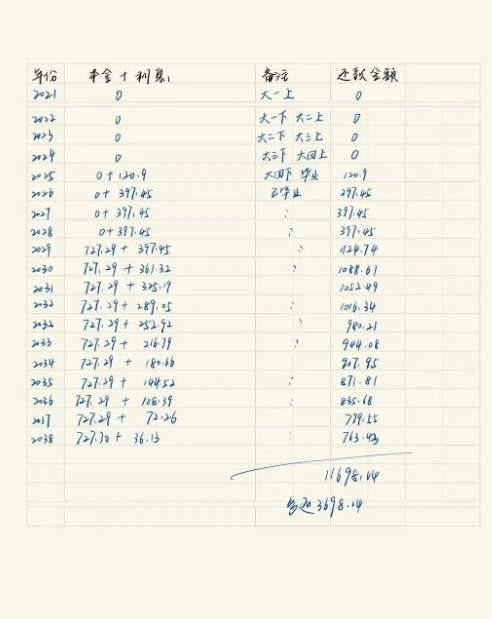 年份 本金+利息 备注 还款金额
2021 0 大一上 0
2022 0 大一下 大二上 0
2023 0 大二下 大三上 0
2024 0 大三下 大四上 0
2025 0+120.9 大四下 毕业 120.9
2026 0+397.45 已毕业 397.45
2027 0+397.45 : 397.45
2028 0+397.45 : 397.45
2029 727.29+397.45 1124.74
2030 727.29+361.32 : 1088.61
2031 727.29+325.19 1052.49
2032 727.29+289.05 : 1016.34
2032 727.29+252.92 : 980.21
2033 727.29+216.79 : 944.08
2034 727.29+180.66 907.95
2035 727.29+144.52 : 871.81
2036 727.29+108.39 : 835.68
2037 727.29+72.26 799.55
2038 727.30+36.13 : 763.43
11698.14
多还3698.14